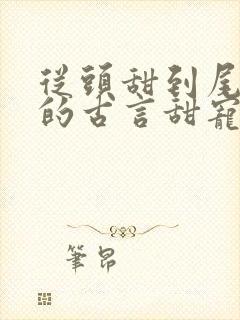 從頭甜到尾
的古言甜寵
筆昂